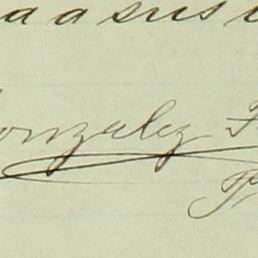 a a sus
onzalez F